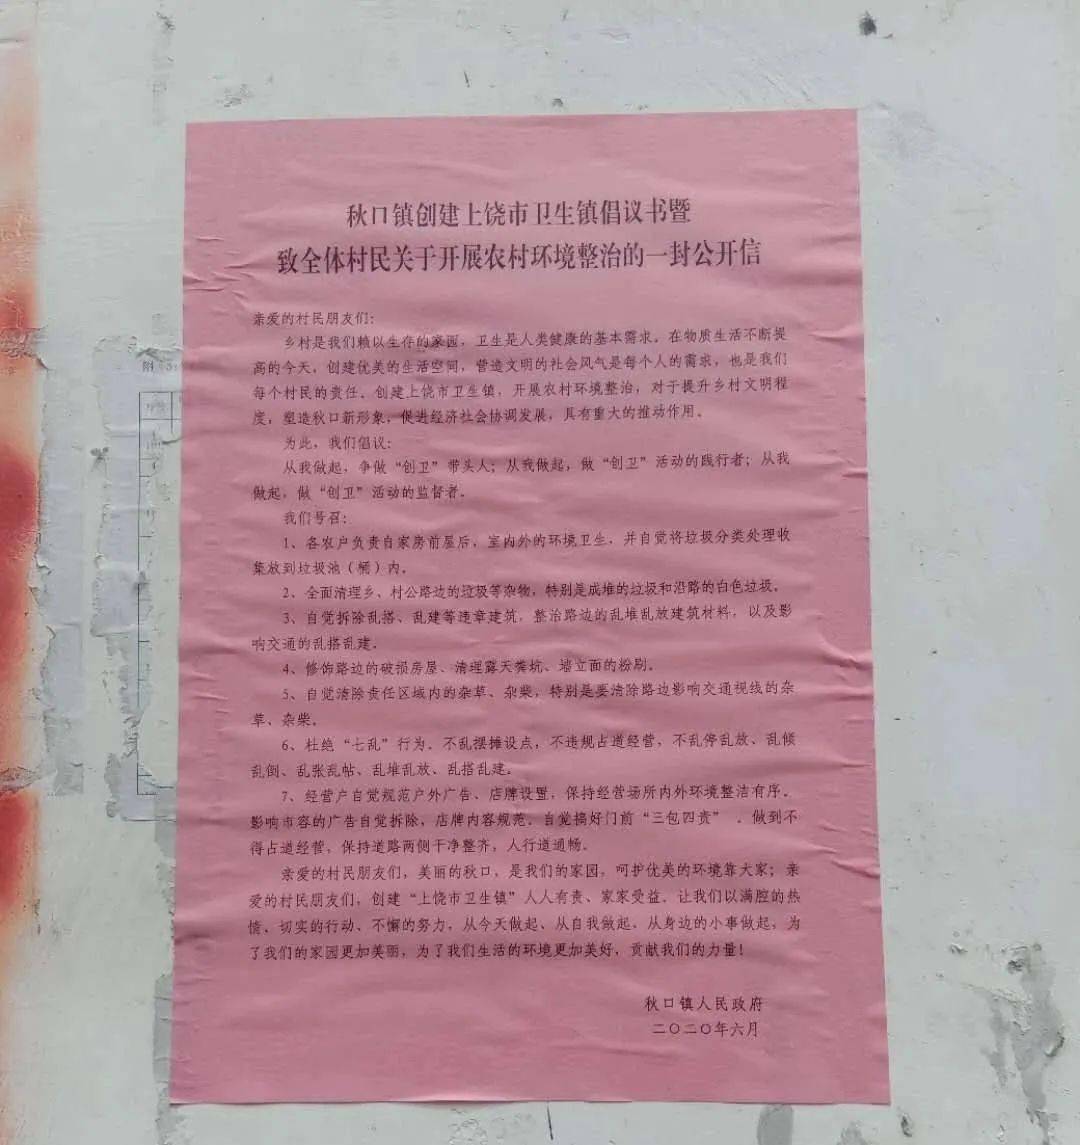 秋口镇创建上饶市卫生镇倡议书暨
致全体村民关于开展农村环境整治的一封公开信
亲爱的村民朋友们：
乡村是我们赖以生存的家园，卫生是人类健康的基本需求。在物质生活不断提
高的今天，创建优美的生活空间，营造文明的社会风气是每个人的需求，也是我们
每个村民的责任。创建上饶市卫生镇，开展农村环境整治，对于提升乡村文明程
度，塑造秋口新形象，促进经济社会协调发展，具有重大的推动作用。
为此，我们倡议：
从我做起，争做“创卫”带头人；从我做起，做“创卫”活动的践行者；从我
做起，做“创卫”活动的监督者。
我们号召：
1、各农户负责自家房前屋后，室内外的环境卫生，并自觉将垃圾分类处理收
集放到垃圾池（桶）内。
2、全面清理乡、村公路边的垃圾等杂物，特别是成堆的垃圾和沿路的白色垃圾。
3、自觉拆除乱搭、乱建等违章建筑，整治路边的乱堆乱放建筑材料，以及影
响交通的乱搭乱建。
4、修饰路边的破损房屋、清理露天粪坑、墙立面的粉刷。
5、自觉清除责任区域内的杂草、杂柴，特别是要清除路边影响交通视线的杂
草、杂柴。
6、杜绝“七乱”行为。不乱摆摊设点，不违规占道经营，不乱停乱放、乱倾
乱倒、乱张乱帖、乱堆乱放、乱搭乱建。
7、经营户自觉规范户外广告、店牌设置，保持经营场所内外环境整洁有序。
影响市容的广告自觉拆除，店牌内容规范。自觉搞好门前“三包四责”。做到不
得占道经营，保持道路两侧干净整齐，人行道通畅。
亲爱的村民朋友们，美丽的秋口，是我们的家园，呵护优美的环境靠大家；亲
爱的村民朋友们，创建“上饶市卫生镇”人人有责、家家受益。让我们以满腔的热
情、切实的行动、不懈的努力，从今天做起、从自我做起、从身边的小事做起，为
了我们的家园更加美丽，为了我们生活的环境更加美好，贡献我们的力量！
秋口镇人民政府
二〇二〇年六月